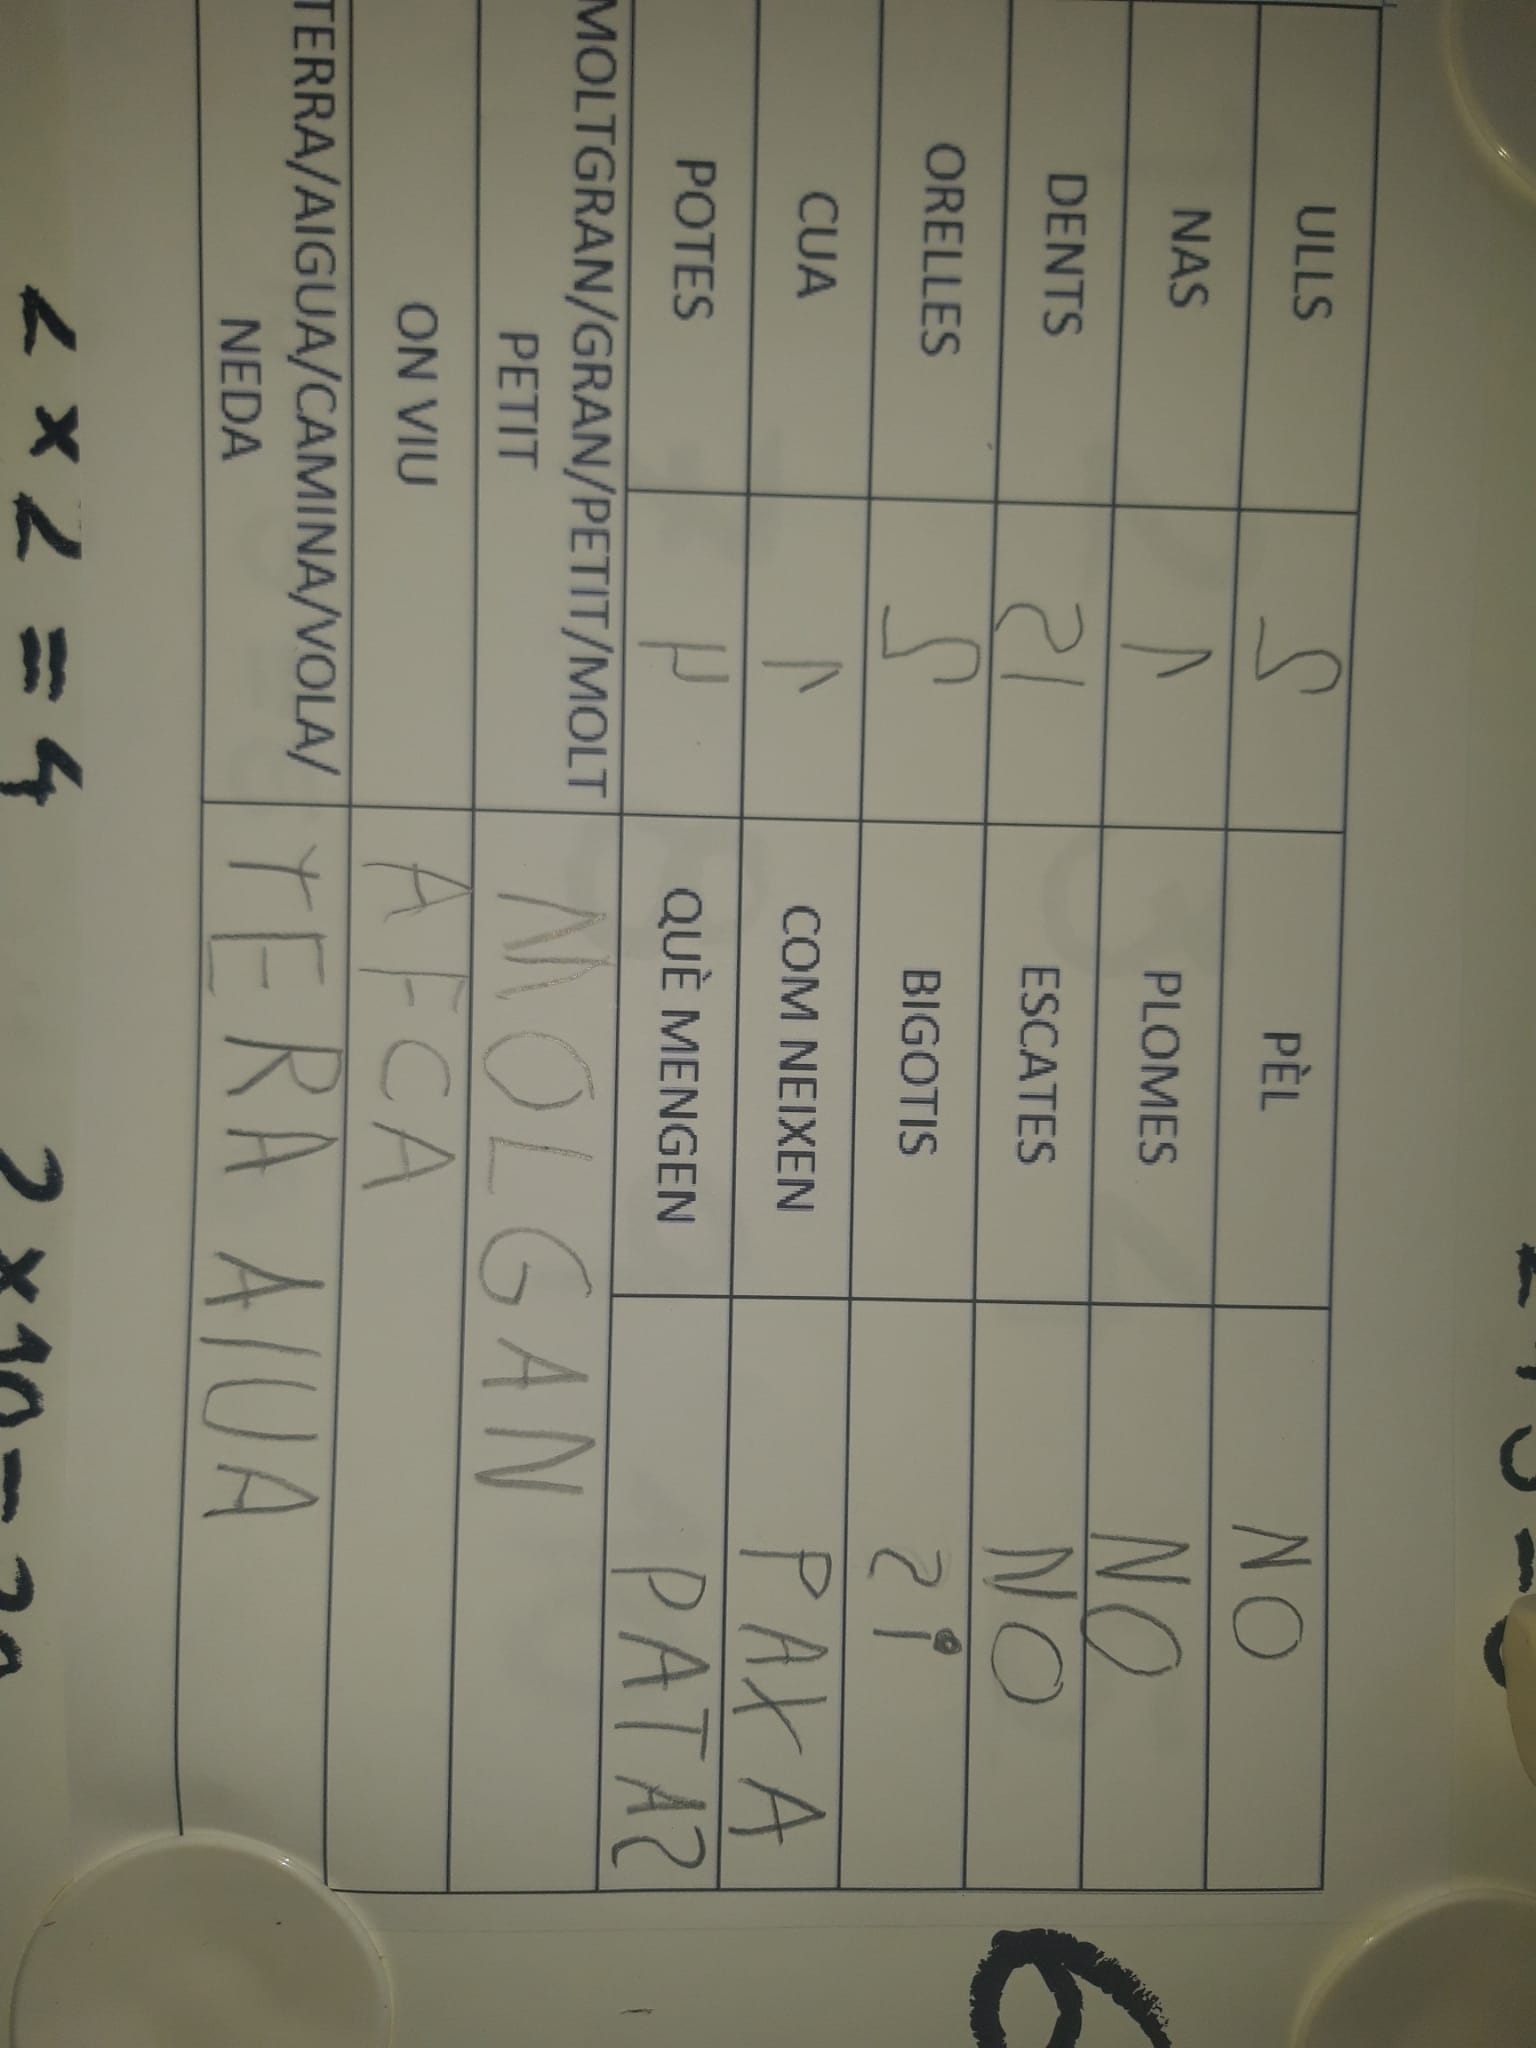 ULLS 2 PÈL NO
NAS 1 PLOMES NO
DENTS SI ESCATES NO
ORELLES 2 BIGOTIS Si
CUA 1 COM NEIXEN PAXA
POTES 4 QUÈ MENGEN PATAS
MOLTGRAN/GRAN/PETIT/MOLT
PETIT
MOLGAN
ON VIU AFCA
TERRA/AIGUA/CAMINA/VOLA/
NEDA
TERA AIUA
2 x 2 = 4 2 x 10 = 20
6